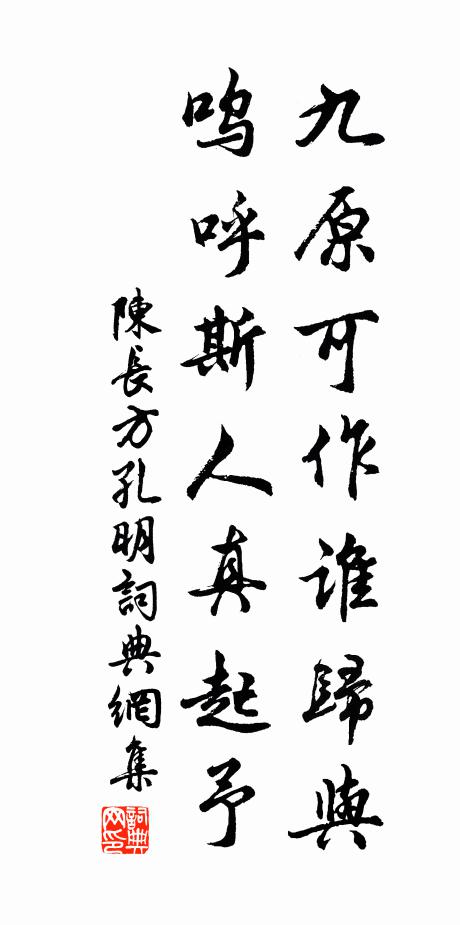 九原可作誰歸與
嗚呼斯人真起予
陳長方孔明詞典網集
詞典网印